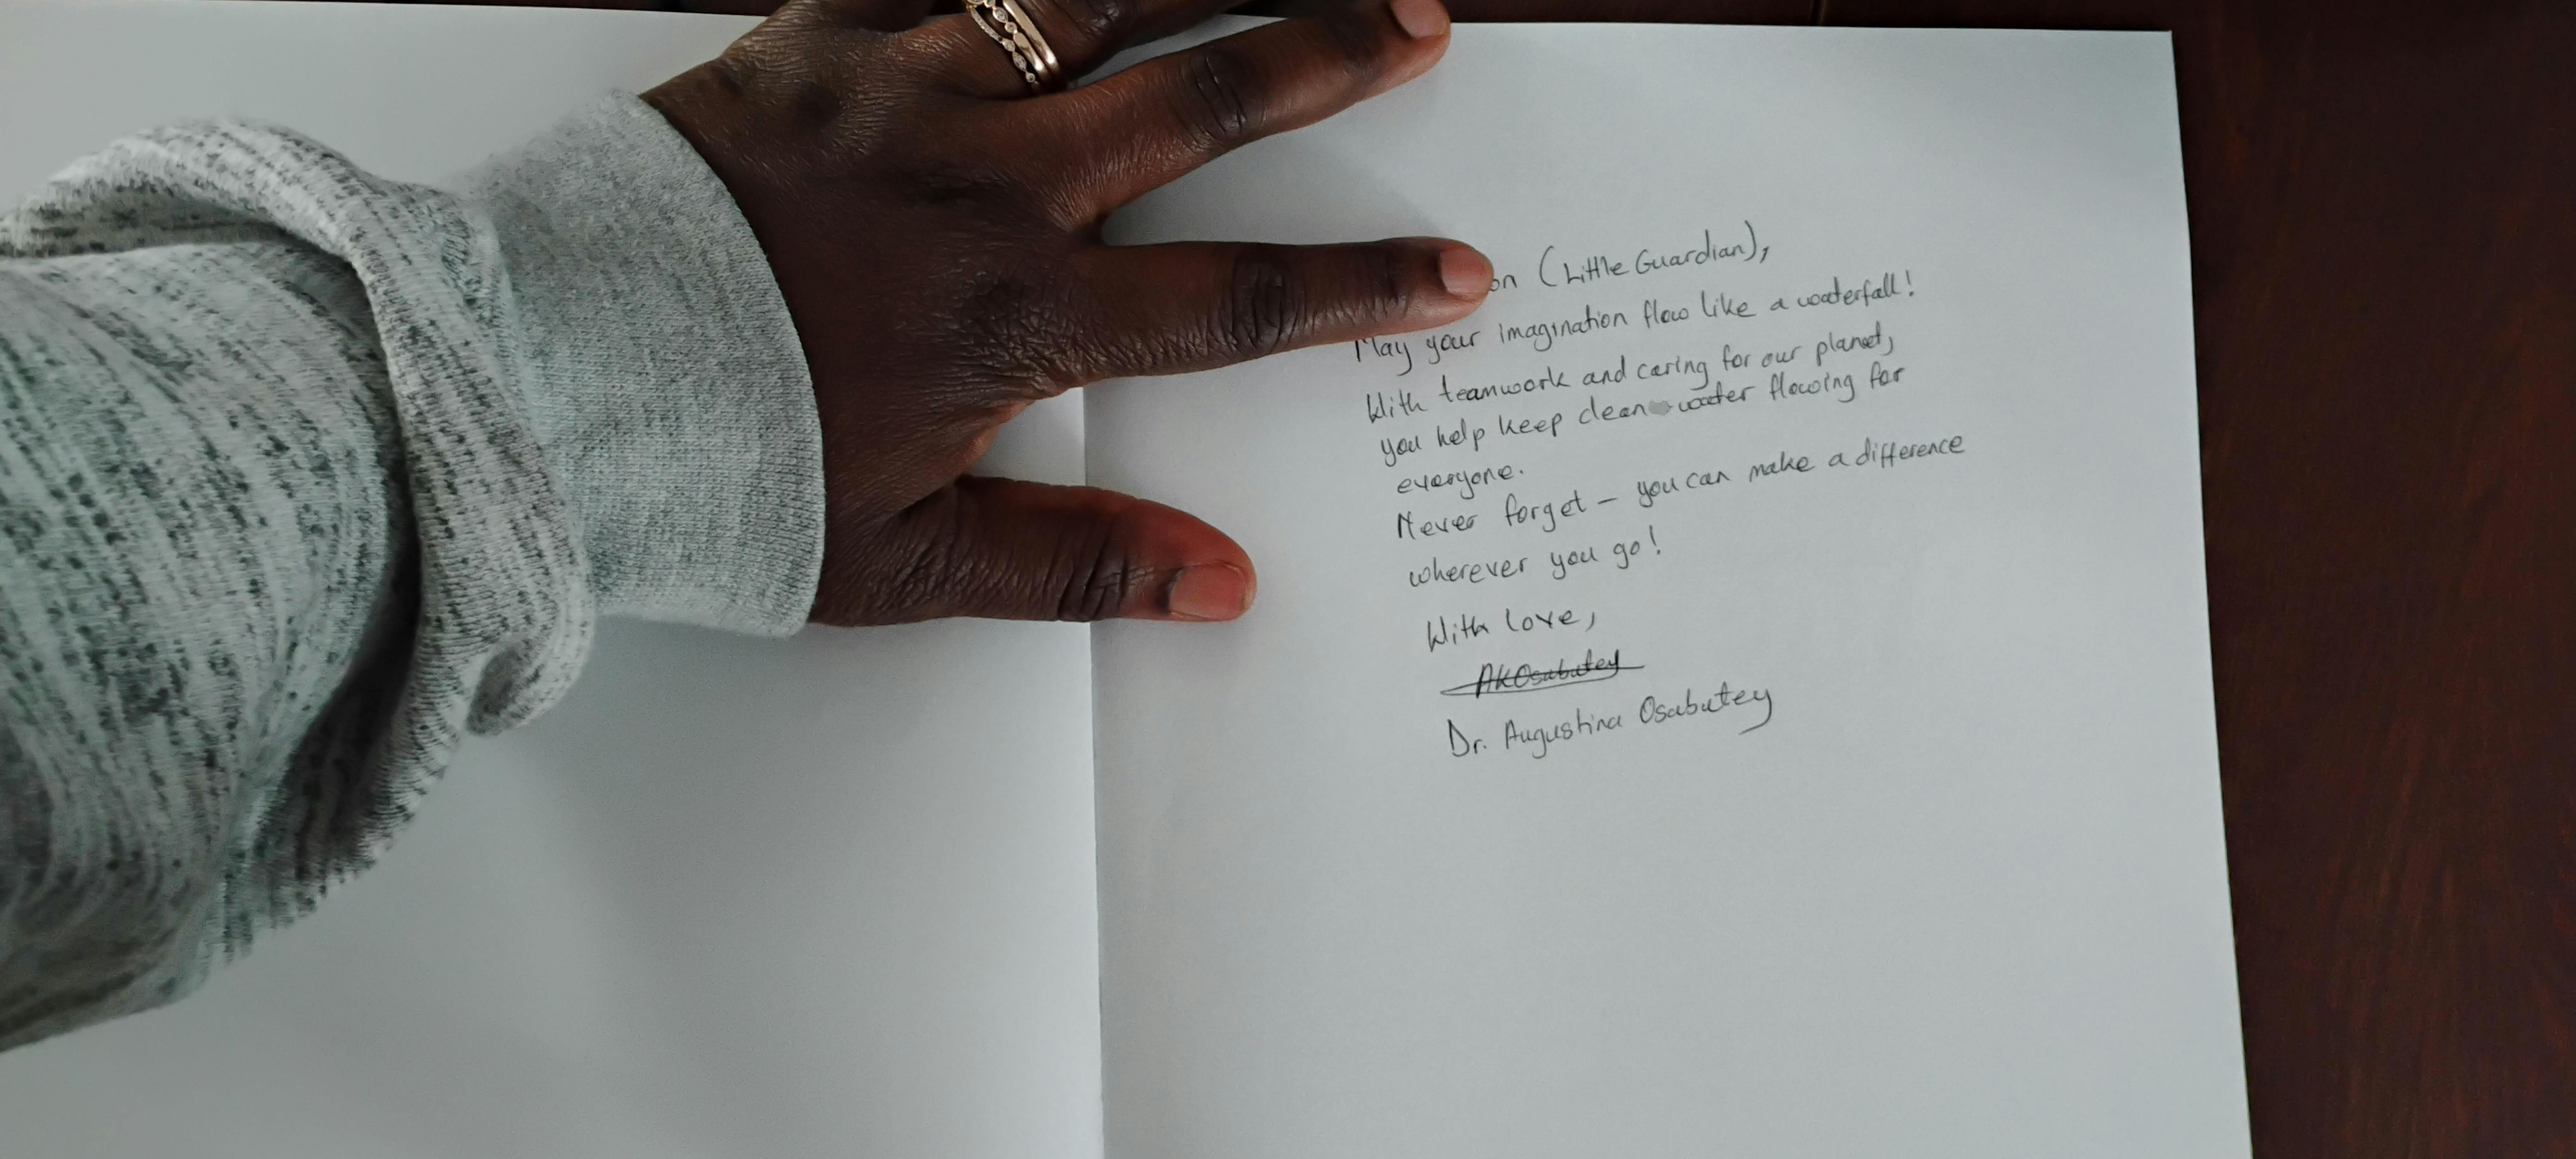 on (Little Guardian),
May your imagination flow like a waterfall!
With teamwork and caring for our planet,
you help keep clean water flowing for
everyone.
Never forget – you can make a difference
wherever you go!
With love,
AKOsabutey
Dr. Augustina Osabutey